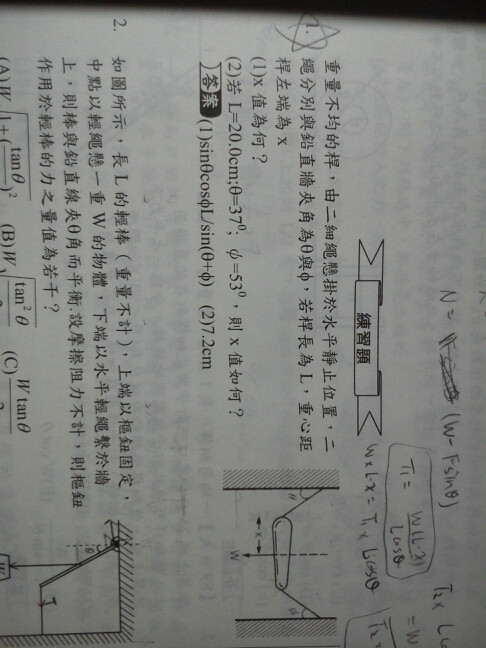 N = (W-Fsinθ)
T₁ = W(L-x) / Lcosθ
W×Lx = T₁×Lcosθ
練習題
1.
重量不均的桿，由二細繩懸掛於水平靜止位置，二
繩分別與鉛直牆夾角為θ與ϕ，若桿長為 L，重心距
桿左端為 x
(1)x 值為何？
(2)若 L=20.0cm;θ=37⁰; ϕ=53⁰，則 x 值如何？
答案 (1)sinθcosϕL/sin(θ+ϕ) (2)7.2cm
θ
ϕ
x
W
2. 如圖所示，長 L 的輕棒（重量不計），上端以樞鈕固定，
中點以輕繩懸一重 W 的物體，下端以水平輕繩繫於牆
上，則棒與鉛直線夾θ角而平衡.設摩擦阻力不計，則樞鈕
作用於輕棒的力之量值為若干？
(A)W√1+(tanθ/2)² (B)W√tan²θ (C)Wtanθ/2
θ
T
W